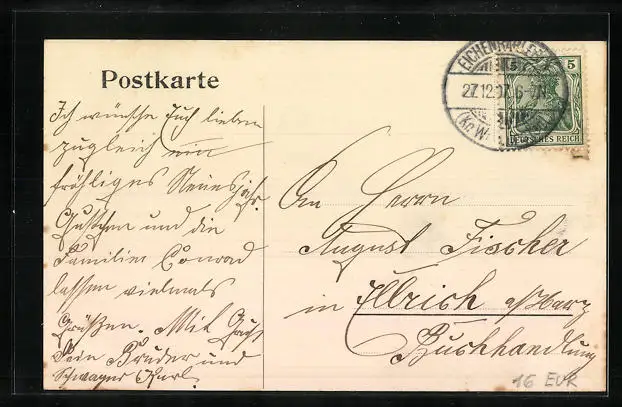 Postkarte
Ich wünsche Euch lieben
zugleich ein
fröhliges Neuesjahr.
und die
Familie Conrad
lassen vielmals
Grüßen. Mit Gruß
Dein Bruder und
Schwager Karl.
EICHENBARLEBEN
27.12.07. 6-7N
5
DEUTSCHES REICH
An Herrn
August Fischer
in Illrich a/Harz
Buchhandlung
16 EUR